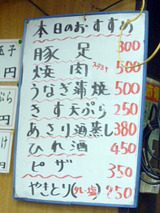 本日のおすすめ
豚足 300
焼肉 500
うなぎ蒲焼 500
きす天ぷら 250
あさり酒蒸し 380
ひれ酒 450
ピザ 350
やきとり(タレ・塩)
玉子
円
ぷら
円